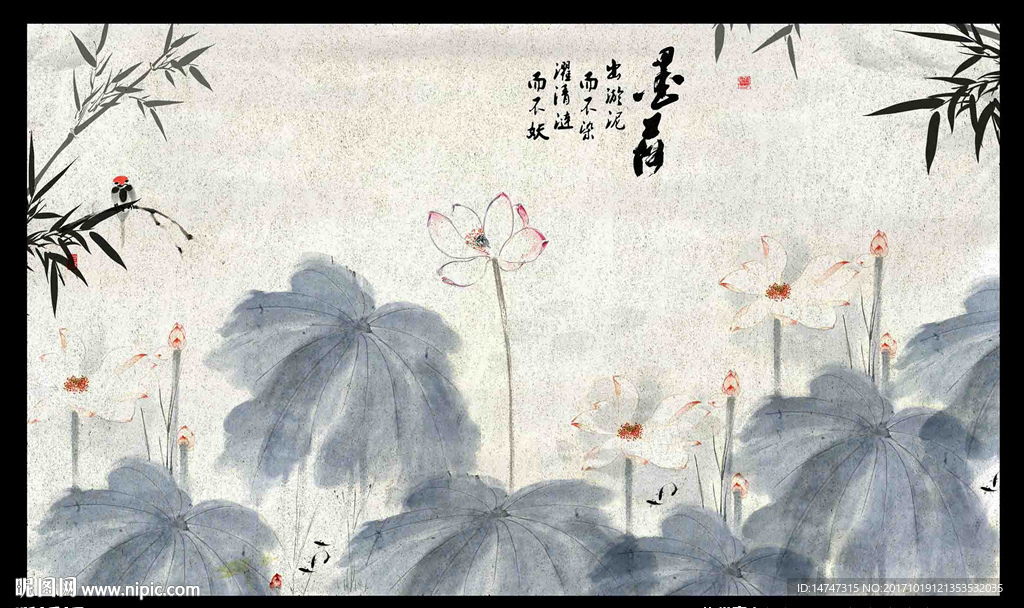 墨荷
出淤泥
而不染
濯清涟
而不妖
昵图网 www.nipic.com
ID:14747315 NO:20171019121353532035